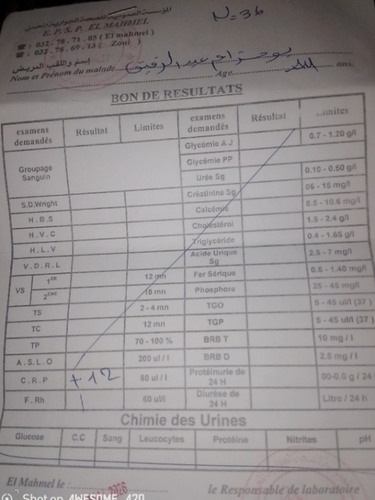 المؤسسة العمومية للصحة الجوارية المحمل
E. P. S. P. EL MAHMEL
N = 36
☎ : 032 - 78 - 71 - 85 ( El mahmel )
☎ : 032 - 78 - 69 - 13 ( Zoui )
إسم واللقب المريض
Nom et Prénom du malade Age ans.
BON DE RESULTATS
examens demandés Résultat Limites examens demandés Résultat Limites
Glycémie A J 0.7 - 1.20 g/l
Groupage Sanguin Glycémie PP
Urée Sg 0.10 - 0.50 g/l
Créatinine Sg 06 - 15 mg/l
S.D.Wright Calcémie 8.5 - 10.6 mg/l
H.B.S Cholestérol 1.5 - 2.4 g/l
H.V.C Triglycéride 0.4 - 1.65 g/l
H.L.V Acide Urique Sg 2.5 - 7 mg/l
V.D.R.L Fer Sérique 0.6 - 1.40 mg/l
VS 1ER 12 mn Phosphore 25 - 45 mg/l
2EME 16 mn TGO 5 - 45 ul/l (37 )
TS 2 - 4 mn TGP 5 - 45 ul/l (37 )
TC 12 mn BRB T 10 mg / l
TP 70 - 100 % BRB D 2.5 mg / l
A.S.L.O 200 ul / l Protéinurie de 24 H 00-0.0 g / 24
C.R.P + 12 60 ul / l Diurèse de 24 H Litre / 24 h
F.Rh 60 ul/l
Chimie des Urines
Glucose C.C Sang Leucocytes Protéine Nitrites pH
El Mahmel le : le Responsable de laboratoire
Shot on 4WESOME 420